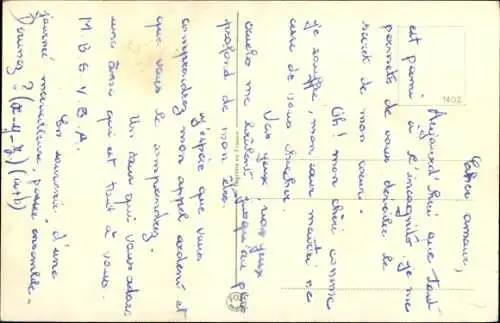 Cher amour,
Aujourd'hui que tout
est permis à l'incognito je me
permets de vous dévoiler le
secret de mon cœur.
Oh! mon chéri comme
je souffre, mon cœur meurtri ne
cesse de vous
Vos yeux, vos yeux
me brûlent jusqu'au plus
profond de mon être.
J'espère que vous
comprendrez mon appel ardent et
que vous le comprendrez.
Un cœur qui vous adore
une âme qui est tout à vous.
M. B. G. V. B. A.
En souvenir d'une
journée merveilleuse, passée ensemble.
Devinez ? (x-y-z) (a+b)
1402